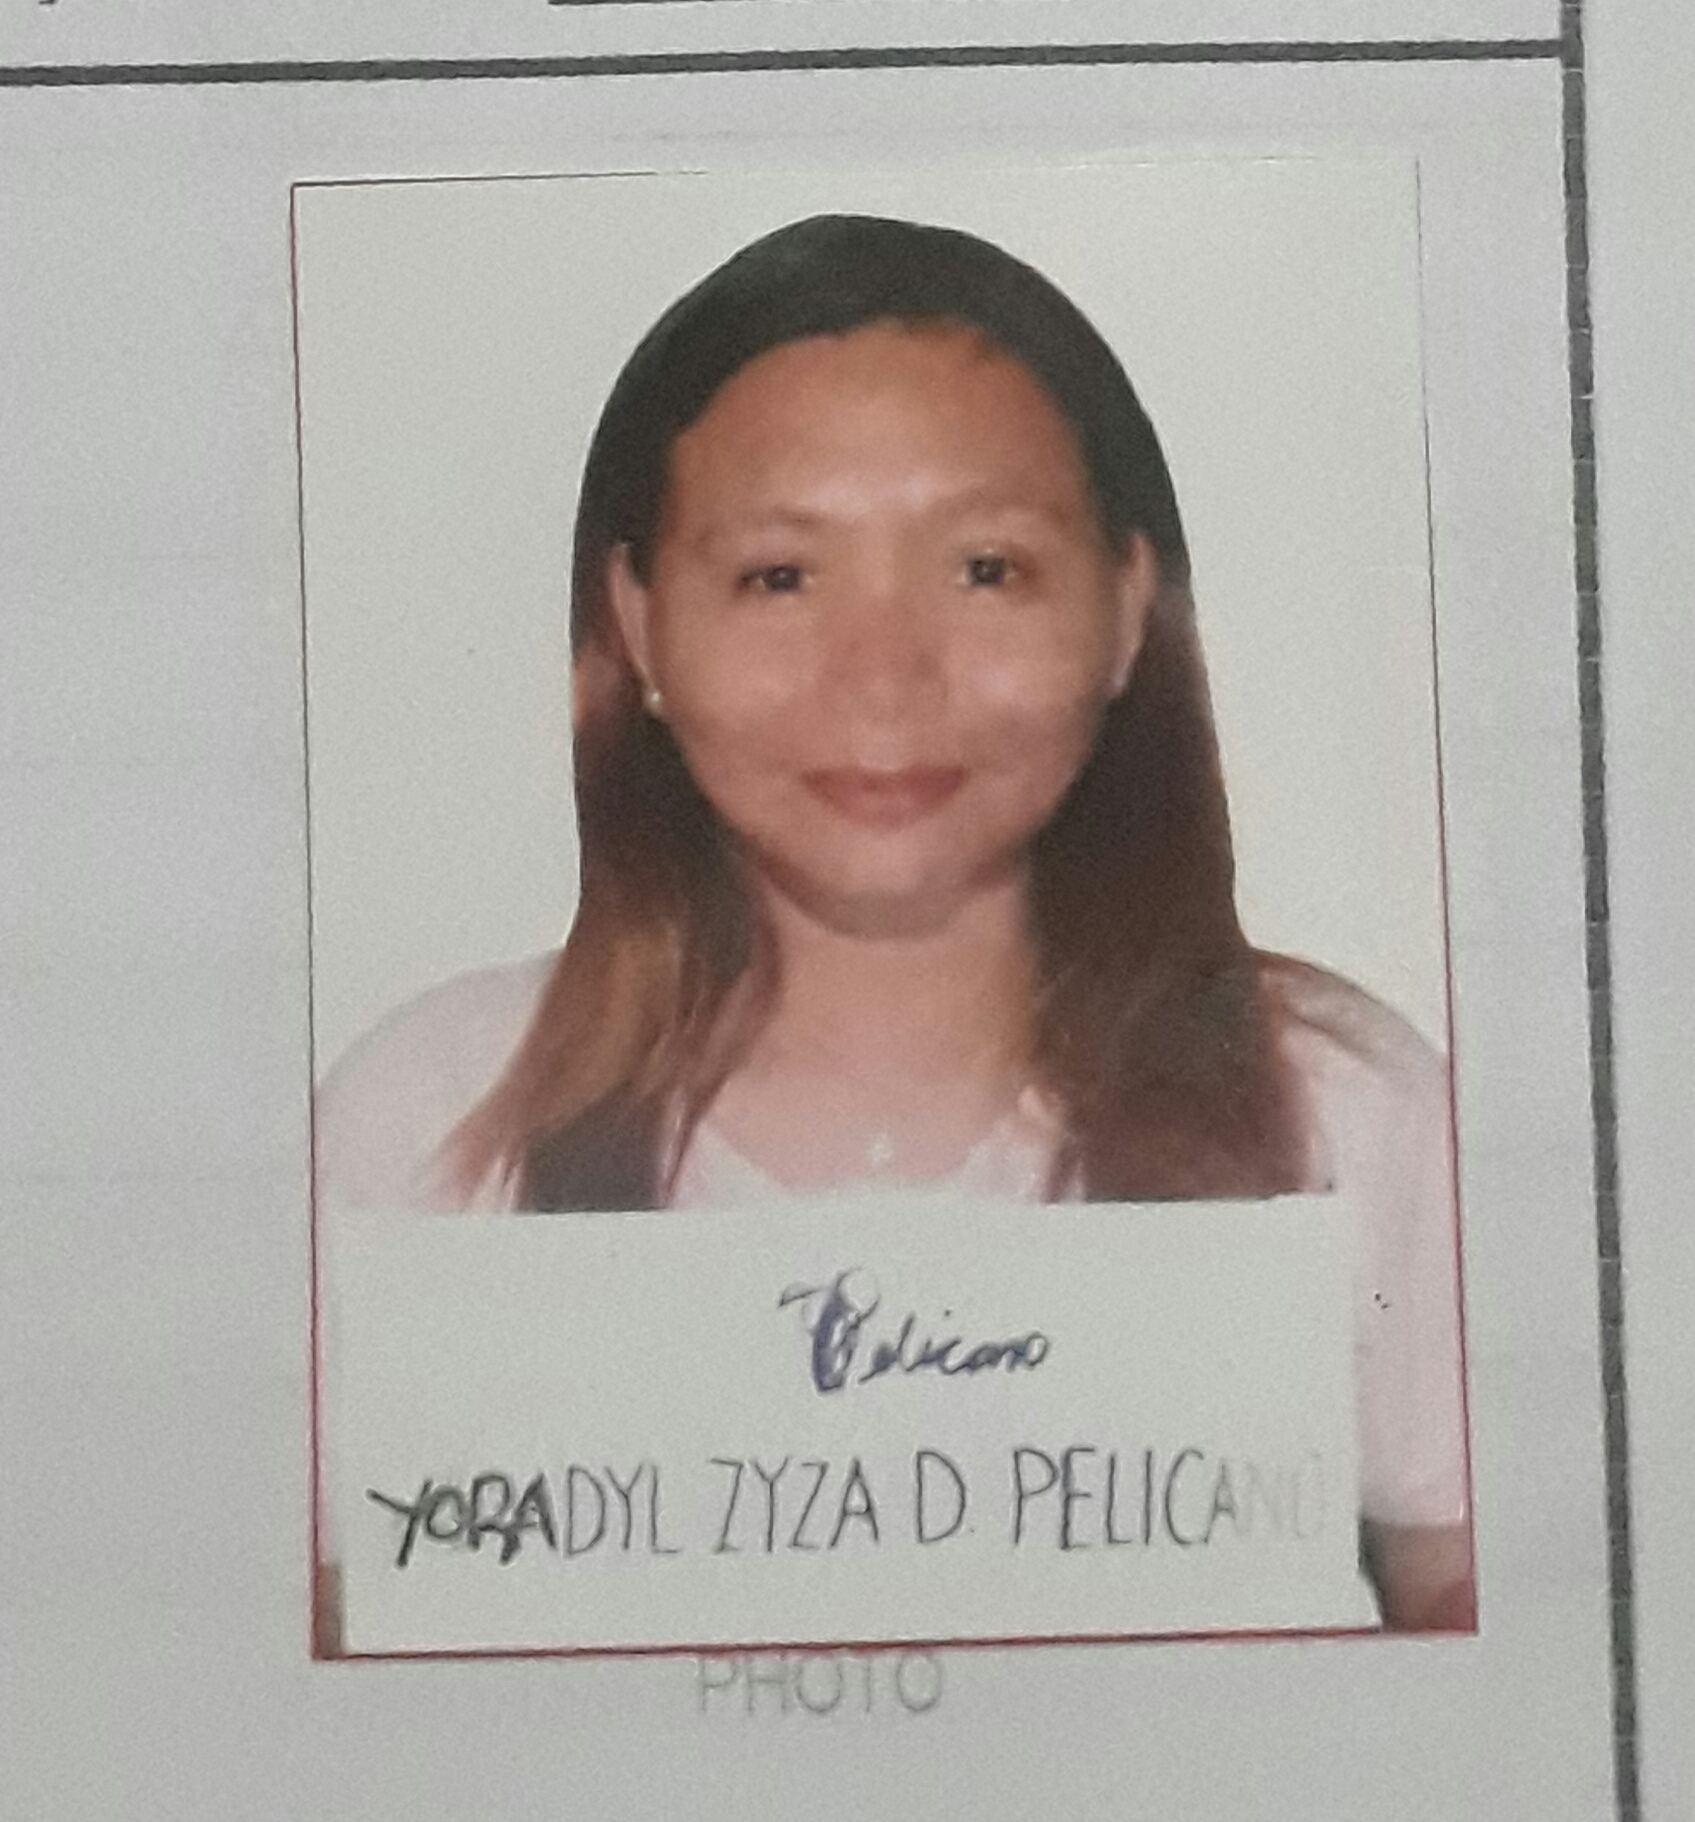 Pelicano
YORADYL ZYZA D. PELICANO
PHOTO